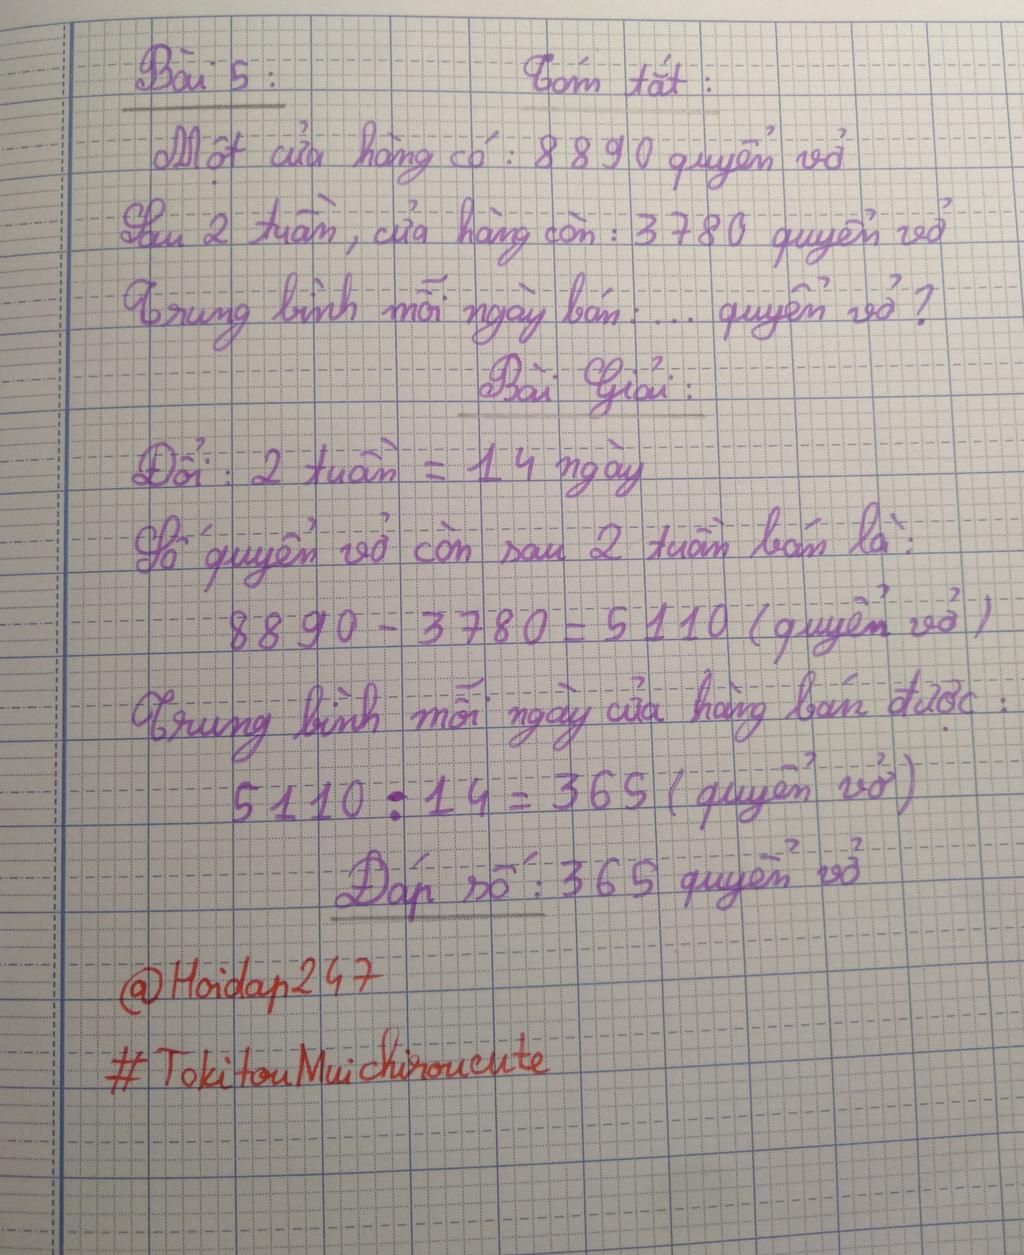 Bài 5: Tóm tắt:
Một cửa hàng có: 8890 quyển vở
Sau 2 tuần, cửa hàng còn: 3780 quyển vở
Trung bình mỗi ngày bán: ... quyển vở?
Bài Giải:
Đổi: 2 tuần = 14 ngày
Số quyển vở còn sau 2 tuần bán là:
8890 - 3780 = 5110 (quyển vở)
Trung bình mỗi ngày cửa hàng bán được:
5110 : 14 = 365 (quyển vở)
Đáp số: 365 quyển vở
@Hoidap247
#TokitouMuichiroucute